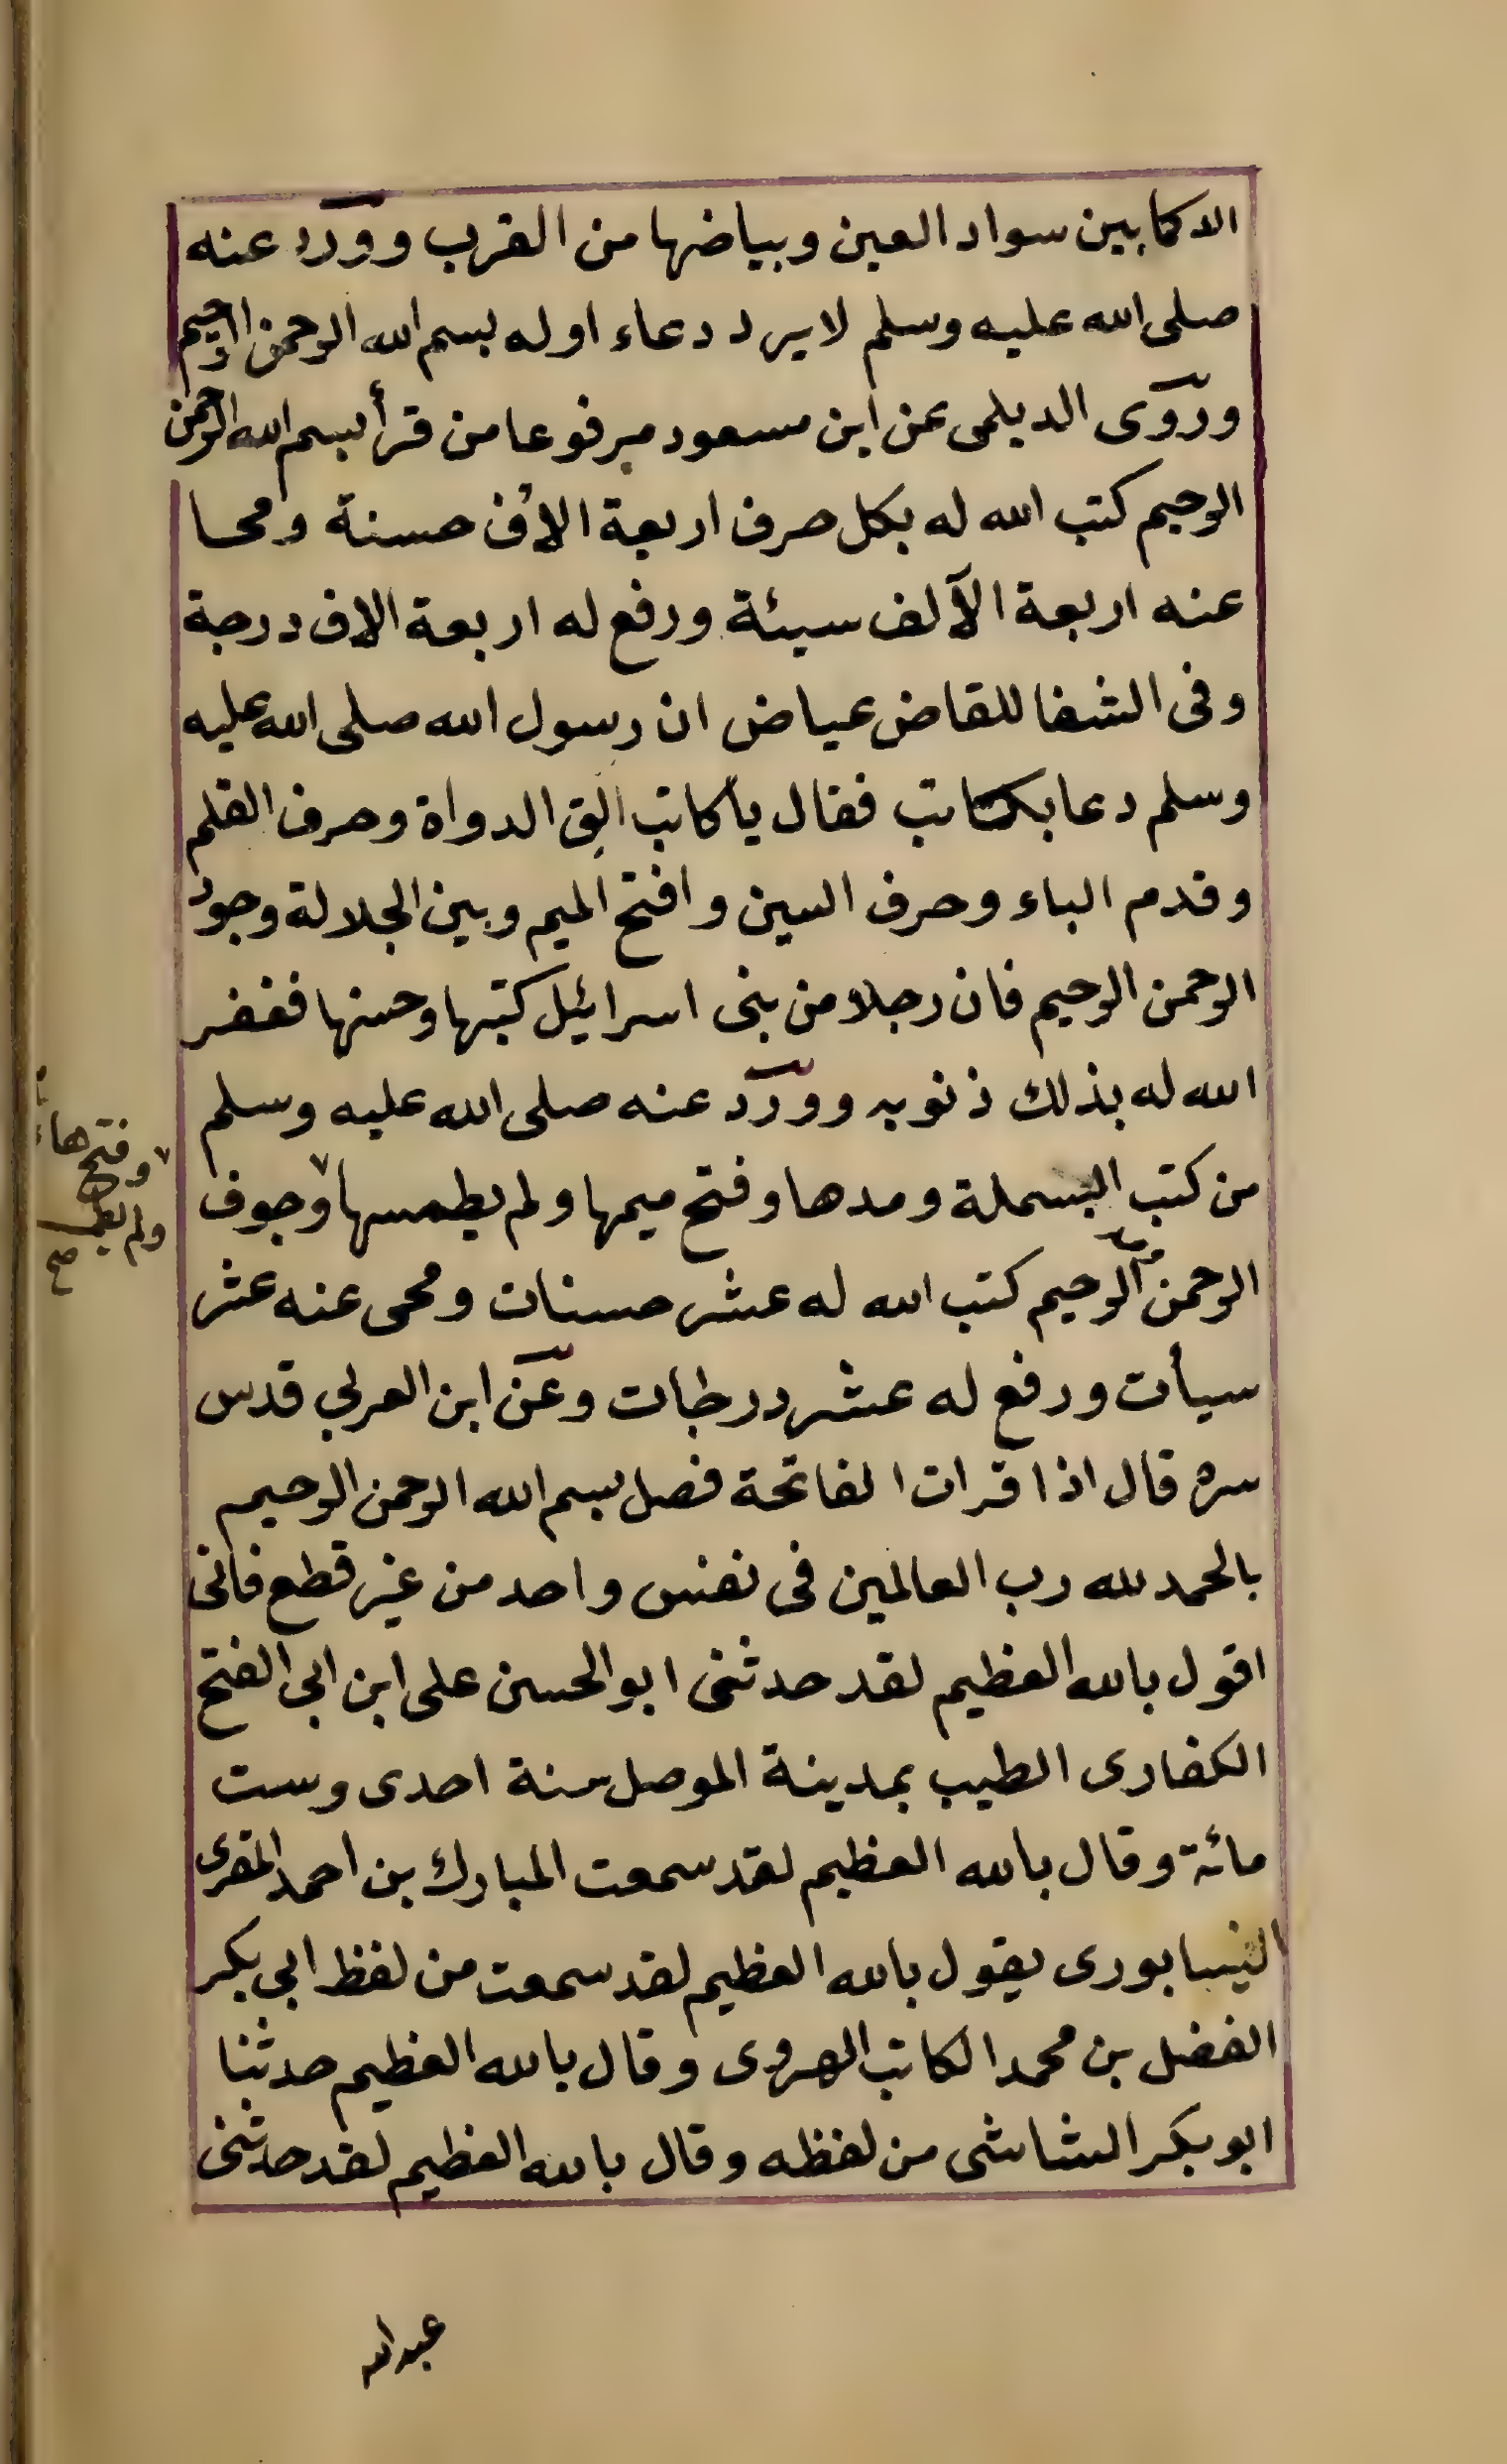 الا كما بين سواد العين وبياضها من القرب وورد عنه
صلى الله عليه وسلم لا يرد دعاء اوله بسم الله الرحمن الرحيم
وروى الديلمى عن ابن مسعود مرفوعا من قرأ بسم الله الرحمن
الرحيم كتب الله له بكل حرف اربعة الاف حسنة ومحا
عنه اربعة الآلف سيئة ورفع له اربعة الاف درجة
وفى الشفا للقاض عياض ان رسول الله صلى الله عليه
وسلم دعا بكاتب فقال يا كاتب الق الدواة وحرف القلم
وقدم الباء وحرف السين وافتح الميم وبين الجلالة وجود
الرحمن الرحيم فان رجلا من بنى اسرائيل كتبها وحسنها فغفر
الله له بذلك ذنوبه وورد عنه صلى الله عليه وسلم
من كتب البسملة ومدها وفتح ميمها ولم يطمسها وجوف
وفتح هاء
ولم يطمس
صح
الرحمن الرحيم كتب الله له عشر حسنات ومحى عنه عشر
سيأت ورفع له عشر درجات وعن ابن العربي قدس
سره قال اذا قرات الفاتحة فصل بسم الله الرحمن الرحيم
بالحمد لله رب العالمين فى نفس واحد من غير قطع فانى
اقول بالله العظيم لقد حدثنى ابو الحسن على ابن ابي الفتح
الكفارى الطيب بمدينة الموصل سنة احدى وست
مائة وقال بالله العظيم لقد سمعت المبارك بن احمد المقرى
النيسابورى يقول بالله العظيم لقد سمعت من لفظ ابي بكر
الفضل بن محمد الكاتب الهروى وقال بالله العظيم حدثنا
ابو بكر الشاشى من لفظه وقال بالله العظيم لقد حدثنى
عبد الله